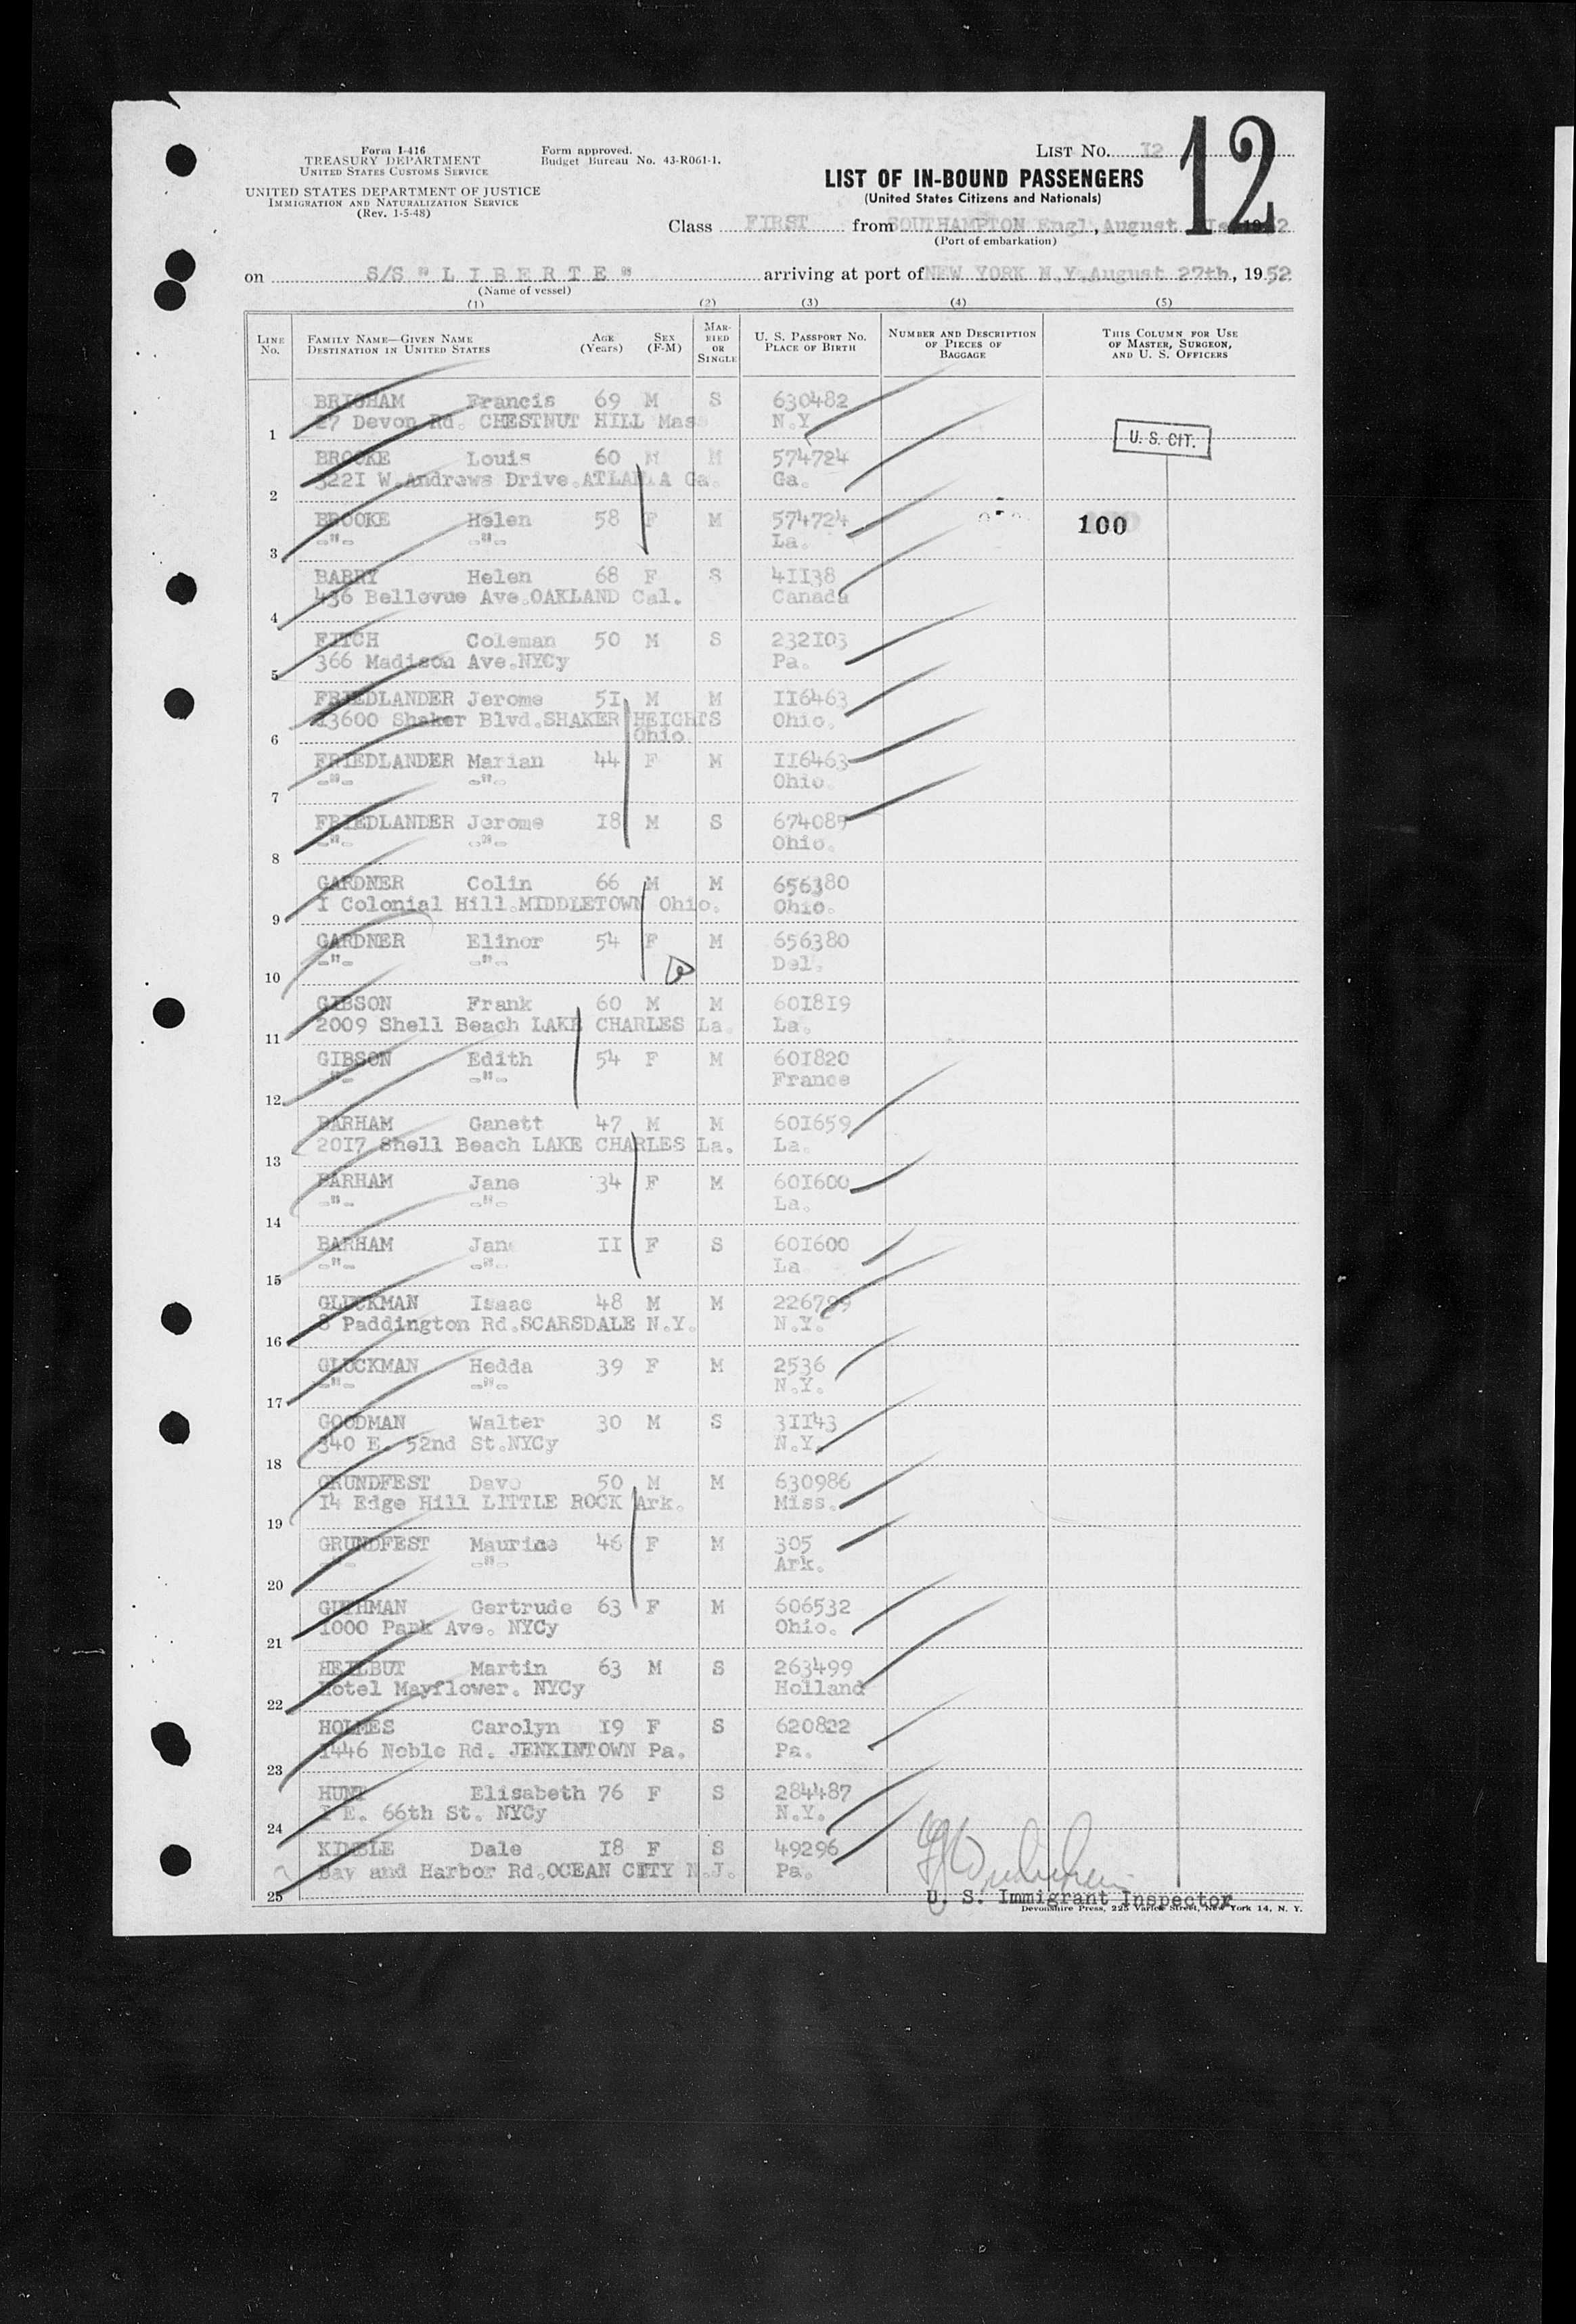 Form I-416
TREASURY DEPARTMENT
UNITED STATES CUSTOMS SERVICE
UNITED STATES DEPARTMENT OF JUSTICE
IMMIGRATION AND NATURALIZATION SERVICE
(Rev. 1-5-48)
Form approved.
Budget Bureau No. 43-R061-1.
LIST NO. I2
12
LIST OF IN-BOUND PASSENGERS
(United States Citizens and Nationals)
Class FIRST from SOUTHAMPTON Engl, August
(Port of embarkation)
on S/S " L I B E R T E " arriving at port of NEW YORK N.Y. August 27th, 1952
(Name of vessel)
(1) (2) (3) (4) (5)
LINE NO. FAMILY NAME—GIVEN NAME DESTINATION IN UNITED STATES AGE (Years) SEX (F-M) MARRIED OR SINGLE U. S. PASSPORT NO. PLACE OF BIRTH NUMBER AND DESCRIPTION OF PIECES OF BAGGAGE THIS COLUMN FOR USE OF MASTER, SURGEON, AND U. S. OFFICERS
BRIGHAM Francis 69 M S 630482
1 27 Devon Rd. CHESTNUT HILL Mass N.Y
U. S. CIT.
BROOKE Louis 60 M M 574724
2 322I W.Andrews Drive.ATLANTA Ga. Ga.
BROOKE Helen 58 F M 574724 100
3 -"- -"- La.
BARRY Helen 68 F S 4II38
4 436 Bellevue Ave.OAKLAND Cal. Canada
FITCH Coleman 50 M S 232I03
5 366 Madison Ave.NYCy Pa.
FRIEDLANDER Jerome 5I M M II6463
6 I3600 Shaker Blvd.SHAKER HEIGHTS Ohio Ohio.
FRIEDLANDER Marian 44 F M II6463
7 -"- -"- Ohio.
FRIEDLANDER Jerome I8 M S 674085
8 -"- -"- Ohio.
GARDNER Colin 66 M M 656380
9 I Colonial Hill.MIDDLETOWN Ohio. Ohio.
GARDNER Elinor 54 F M 656380
10 -"- -"- Del.
GIBSON Frank 60 M M 60I8I9
11 2009 Shell Beach LAKE CHARLES La. La.
GIBSON Edith 54 F M 60I820
12 -"- -"- France
BARHAM Ganett 47 M M 60I659
13 20I7 Shell Beach LAKE CHARLES La. La.
BARHAM Jane 34 F M 60I600
14 -"- -"- La.
BARHAM Jane II F S 60I600
15 -"- -"- La
GLUCKMAN Isaac 48 M M 226799
16 8 Paddington Rd.SCARSDALE N.Y. N.Y.
GLUCKMAN Hedda 39 F M 2536
17 -"- -"- N.Y.
GOODMAN Walter 30 M S 3II43
18 340 E. 52nd St.NYCy N.Y.
GRUNDFEST Dave 50 M M 630986
19 I4 Edge Hill LITTLE ROCK Ark. Miss.
GRUNDFEST Maurine 46 F M 305
20 -"- -"- Ark.
GUTHMAN Gertrude 63 F M 606532
21 I000 Park Ave. NYCy Ohio.
HEILBUT Martin 63 M S 263499
22 Hotel Mayflower. NYCy Holland
HOLMES Carolyn I9 F S 620822
23 I446 Noble Rd. JENKINTOWN Pa. Pa.
HUNT Elisabeth 76 F S 284487
24 I E. 66th St. NYCy N.Y.
KIMBLE Dale I8 F S 49296
25 Bay and Harbor Rd.OCEAN CITY N.J. Pa.
U. S. Immigrant Inspector
Devonshire Press, 225 Varick Street, New York 14, N. Y.